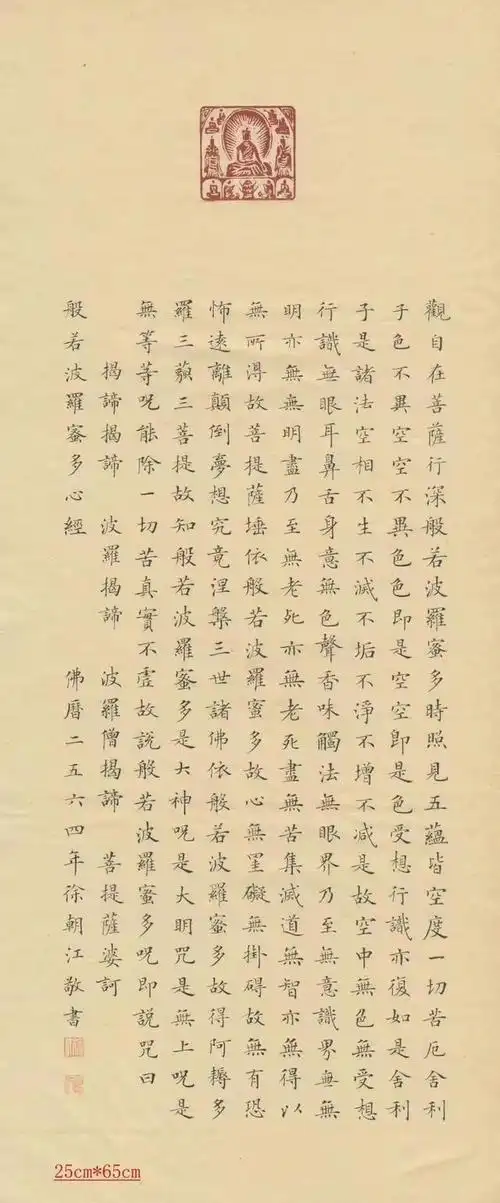 觀自在菩薩行深般若波羅蜜多時照見五蘊皆空度一切苦厄舍利
子色不異空空不異色色即是空空即是色受想行識亦復如是舍利
子是諸法空相不生不滅不垢不淨不增不減是故空中無色無受想
行識無眼耳鼻舌身意無色聲香味觸法無眼界乃至無意識界無無
明亦無無明盡乃至無老死亦無老死盡無苦集滅道無智亦無得以
無所得故菩提薩埵依般若波羅蜜多故心無罣礙無掛碍故無有恐
怖遠離顛倒夢想究竟涅槃三世諸佛依般若波羅蜜多故得阿耨多
羅三藐三菩提故知般若波羅蜜多是大神呪是大明咒是無上呪是
無等等呪能除一切苦真實不虛故說般若波羅蜜多呪即說咒曰
揭諦揭諦 波羅揭諦 波羅僧揭諦 菩提薩婆訶
般若波羅蜜多心經 佛曆二五六四年徐朝江敬書
25cm*65cm